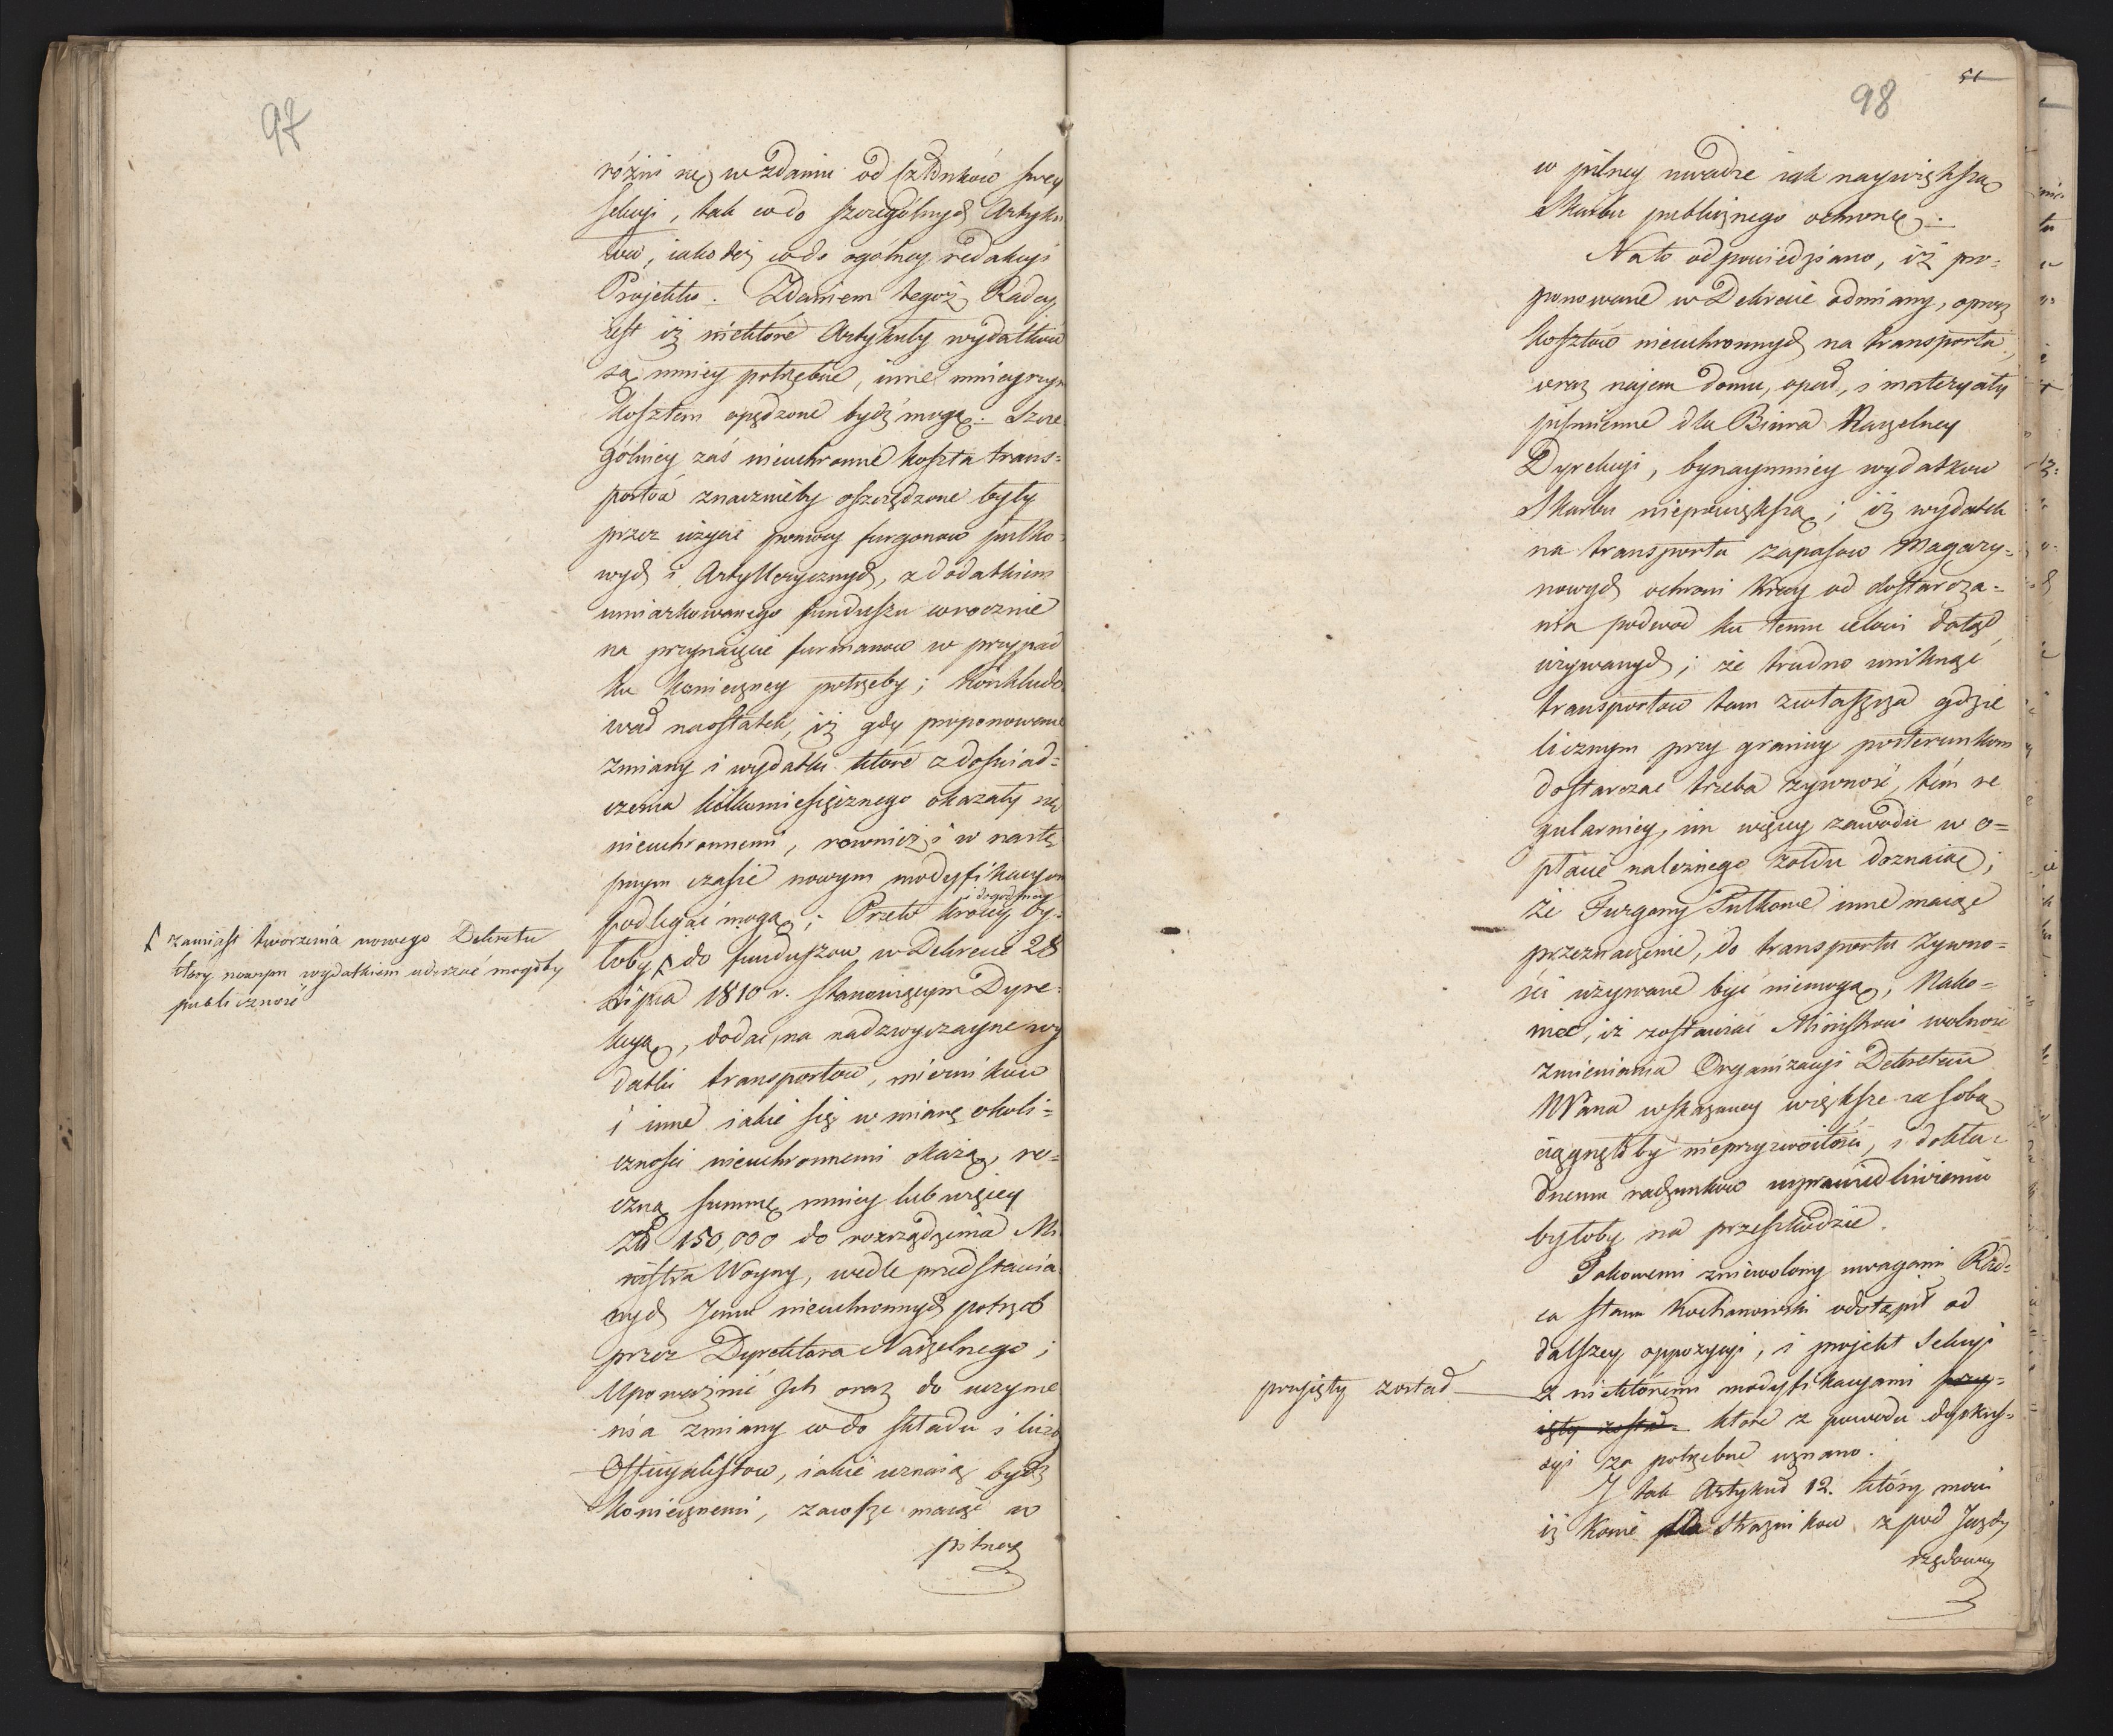 97
różni się w zdaniu od Członków swey
Sekcyi, tak co do szczególnych Artyku
łow, iako też co do ogólney redakcyi
Projektu. Zdaniem tegoż Radcy
iest iż niektóre Artykuły wydatkow
są mniey potrzebne, inne mnieyszym
kosztem opędzone bydź mogą. Szcze
gólniey zaś nieuchronne koszta trans=
portów znacznieby oszczędzone były
przez użycie pomocy furgonow pułko=
wych i Artylleryicznych, z dodatkiem
umiarkowanego funduszu corocznie
na przynaięcie furmanow w przypad
ku konieczney potrzeby; konkludo
wał naostatek, iż gdy proponowane
zmiany i wydatki które z doświad=
czenia kilkomiesięcznego okazały się
nieuchronnemi, rownież i w nastę
pnym czasie nowym modyfikacyom
podlegać mogą; Przeto krócey i dogodniey by=
łoby ſ do funduszow w Dekrecie 28
Lipca 1810 r. stanowiącym Dyre=
kcyą, dodać, na nadzwyczayne wy
datki transportow, miernikow
i inne iakie się w miarę okoli=
czności nieuchronnemi okażą, ro=
czną summę mniey lub więcey
Złł 150,000 do rozrządzenia Mi
nistra Woyny, wedle przedstawia
nych Jemu nieuchronnych potrzeb
przez Dyrektora Naczelnego;
Upoważnić Ich oraz do uczynie
nia zmiany co do składu i liczby
Officyalistow, iakie uznaią bydź
koniecznemi, zawsze maiąc w
pilney
ſ zamiast tworzenia nowego Dekretu
który nowym wydatkiem uderzać mogłby
publiczność
51
98
w pilney uwadze iak naywiększą
Skarbu publicznego ochronę.
Na to odpowiedziano, iż pro=
ponowane w Dekrecie odmiany, oprocz
kosztów nieuchronnych na transporta,
oraz najem domu, opał, i materyały
piśmienne dla Biura Naczelney
Dyrekcyi, bynaymniey wydatkow
Skarbu niepowiększą; iż wydatek
na transporta zapasow Magazy=
nowych ochroni Kray od dostarcza=
nia podwod ku temu celowi dotąd
używanych; że trudno uniknąć
transportow tam zwłaszcza gdzie
licznym przy granicy posterunkom
dostarczać trzeba żywność, tém re
gularniey, im więcey zawodu w o=
płacie należnego żołdu doznaią;
że Furgony Pułkowe inne maiąc
przeznaczenie, do transportu żywno=
ści używane być niemogą; Nako=
niec, iż zostawiać Ministrowi wolność
zmieniania Organizacyi Dekretem
NPana wskazaney większe za sobą
ciągnęłoby nieprzyzwoitości, i dokła=
dnemu rachunkow usprawiedliwieniu
byłoby na przeszkodzie.
Takowemi zniewolony uwagami Rad=
ca Stanu Kochanowski odstąpił od
dalszey oppozycyi, i projekt Sekcyi
przyięty został
z niektóremi modyfikacyami przy=
ięty został które z powodu dyskus=
syi za potrzebne uznano.
I tak Artykuł 12. który mówi
iż konie dla Strażnikow z pod Jazdy
rządowey